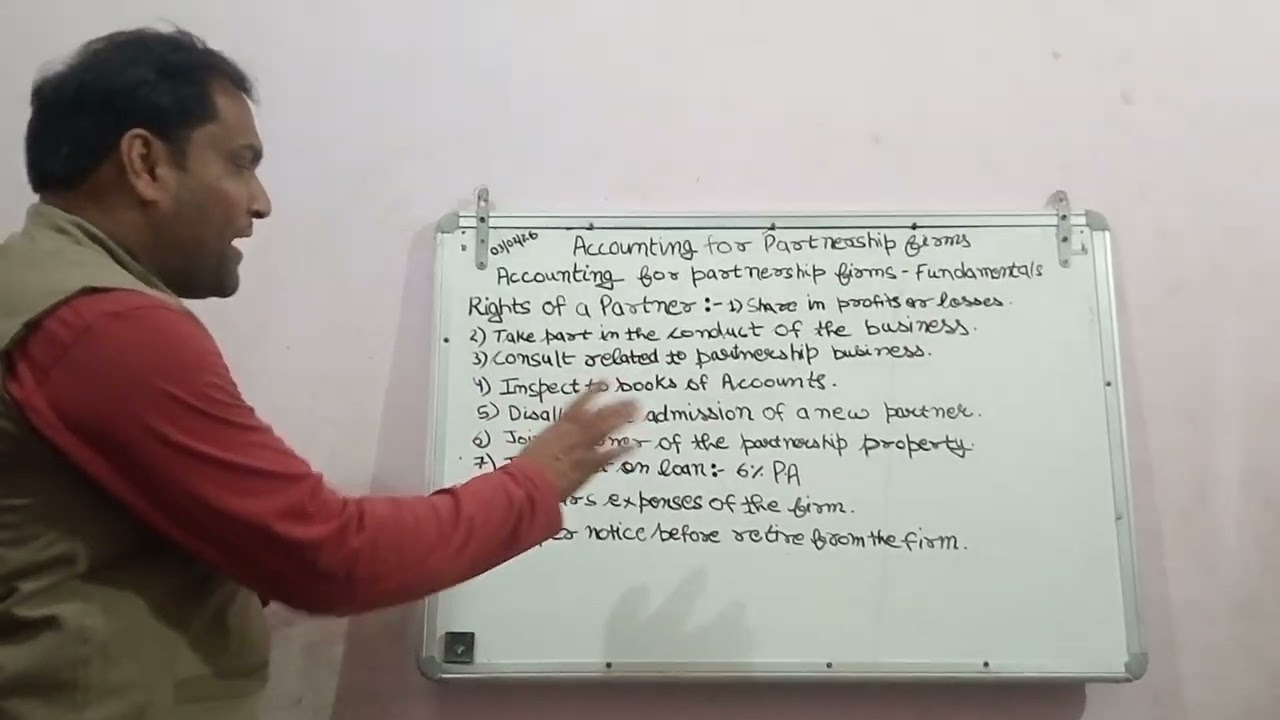 03/02/26 Accounting for Partnership firms
Accounting for partnership firms - Fundamentals
Rights of a Partner :- 1) Share in profits or losses.
2) Take part in the conduct of the business.
3) Consult related to partnership business.
4) Inspect to books of Accounts.
5) admission of a new partner.
6) of the partnership property.
7) on loan :- 6% PA
expenses of the firm.
notice before retire from the firm.